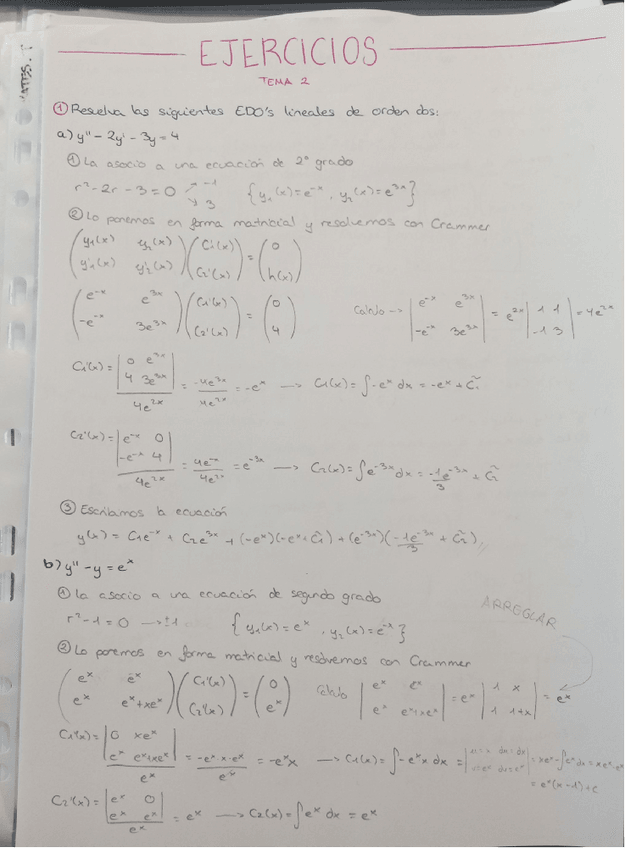 EJERCICIOS
TEMA 2
① Resuelva las siguientes EDO's lineales de orden dos:
a) y'' - 2y' - 3y = 4
① La asocio a una ecuación de 2º grado
r² - 2r - 3 = 0 -1 3 {y₁(x) = e⁻ˣ, y₂(x) = e³ˣ}
② Lo ponemos en forma matricial y resolvemos con Crammer
(y₁(x) y₂(x) ; y'₁(x) y'₂(x)) (C₁'(x) ; C₂'(x)) = (0 ; h(x))
(e⁻ˣ e³ˣ ; -e⁻ˣ 3e³ˣ) (C₁'(x) ; C₂'(x)) = (0 ; 4) Calculo → |e⁻ˣ e³ˣ ; -e⁻ˣ 3e³ˣ| = e²ˣ |1 1 ; -1 3| = 4e²ˣ
C₁'(x) = |0 e³ˣ ; 4 3e³ˣ| / 4e²ˣ = -4e³ˣ / 4e²ˣ = -eˣ → C₁(x) = ∫-eˣ dx = -eˣ + C̃₁
C₂'(x) = |e⁻ˣ 0 ; -e⁻ˣ 4| / 4e²ˣ = 4e⁻ˣ / 4e²ˣ = e⁻³ˣ → C₂(x) = ∫e⁻³ˣ dx = -1/3 e⁻³ˣ + C̃₂
③ Escribamos la ecuación
y(x) = C₁e⁻ˣ + C₂e³ˣ + (-eˣ)(-eˣ + C̃₁) + (e⁻³ˣ)(-1/3 e⁻³ˣ + C̃₂)
b) y'' - y = eˣ
① la asocio a una ecuación de segundo grado
ARREGLAR
r² - 1 = 0 → ±1 {y₁(x) = eˣ, y₂(x) = e⁻ˣ}
② Lo ponemos en forma matricial y resolvemos con Crammer
(eˣ eˣ ; eˣ eˣ + xeˣ) (C₁'(x) ; C₂'(x)) = (0 ; eˣ) Calculo |eˣ eˣ ; eˣ eˣ + xeˣ| = eˣ |1 x ; 1 1+x| = eˣ
C₁'(x) = |0 xeˣ ; eˣ eˣ + xeˣ| / eˣ = -eˣ·x·eˣ / eˣ = -eˣx → C₁(x) = ∫-eˣx dx = = xeˣ - ∫eˣ dx = xeˣ - eˣ
= eˣ(x-1) + C
C₂'(x) = |eˣ 0 ; eˣ eˣ| / eˣ = eˣ → C₂(x) = ∫eˣ dx = eˣ